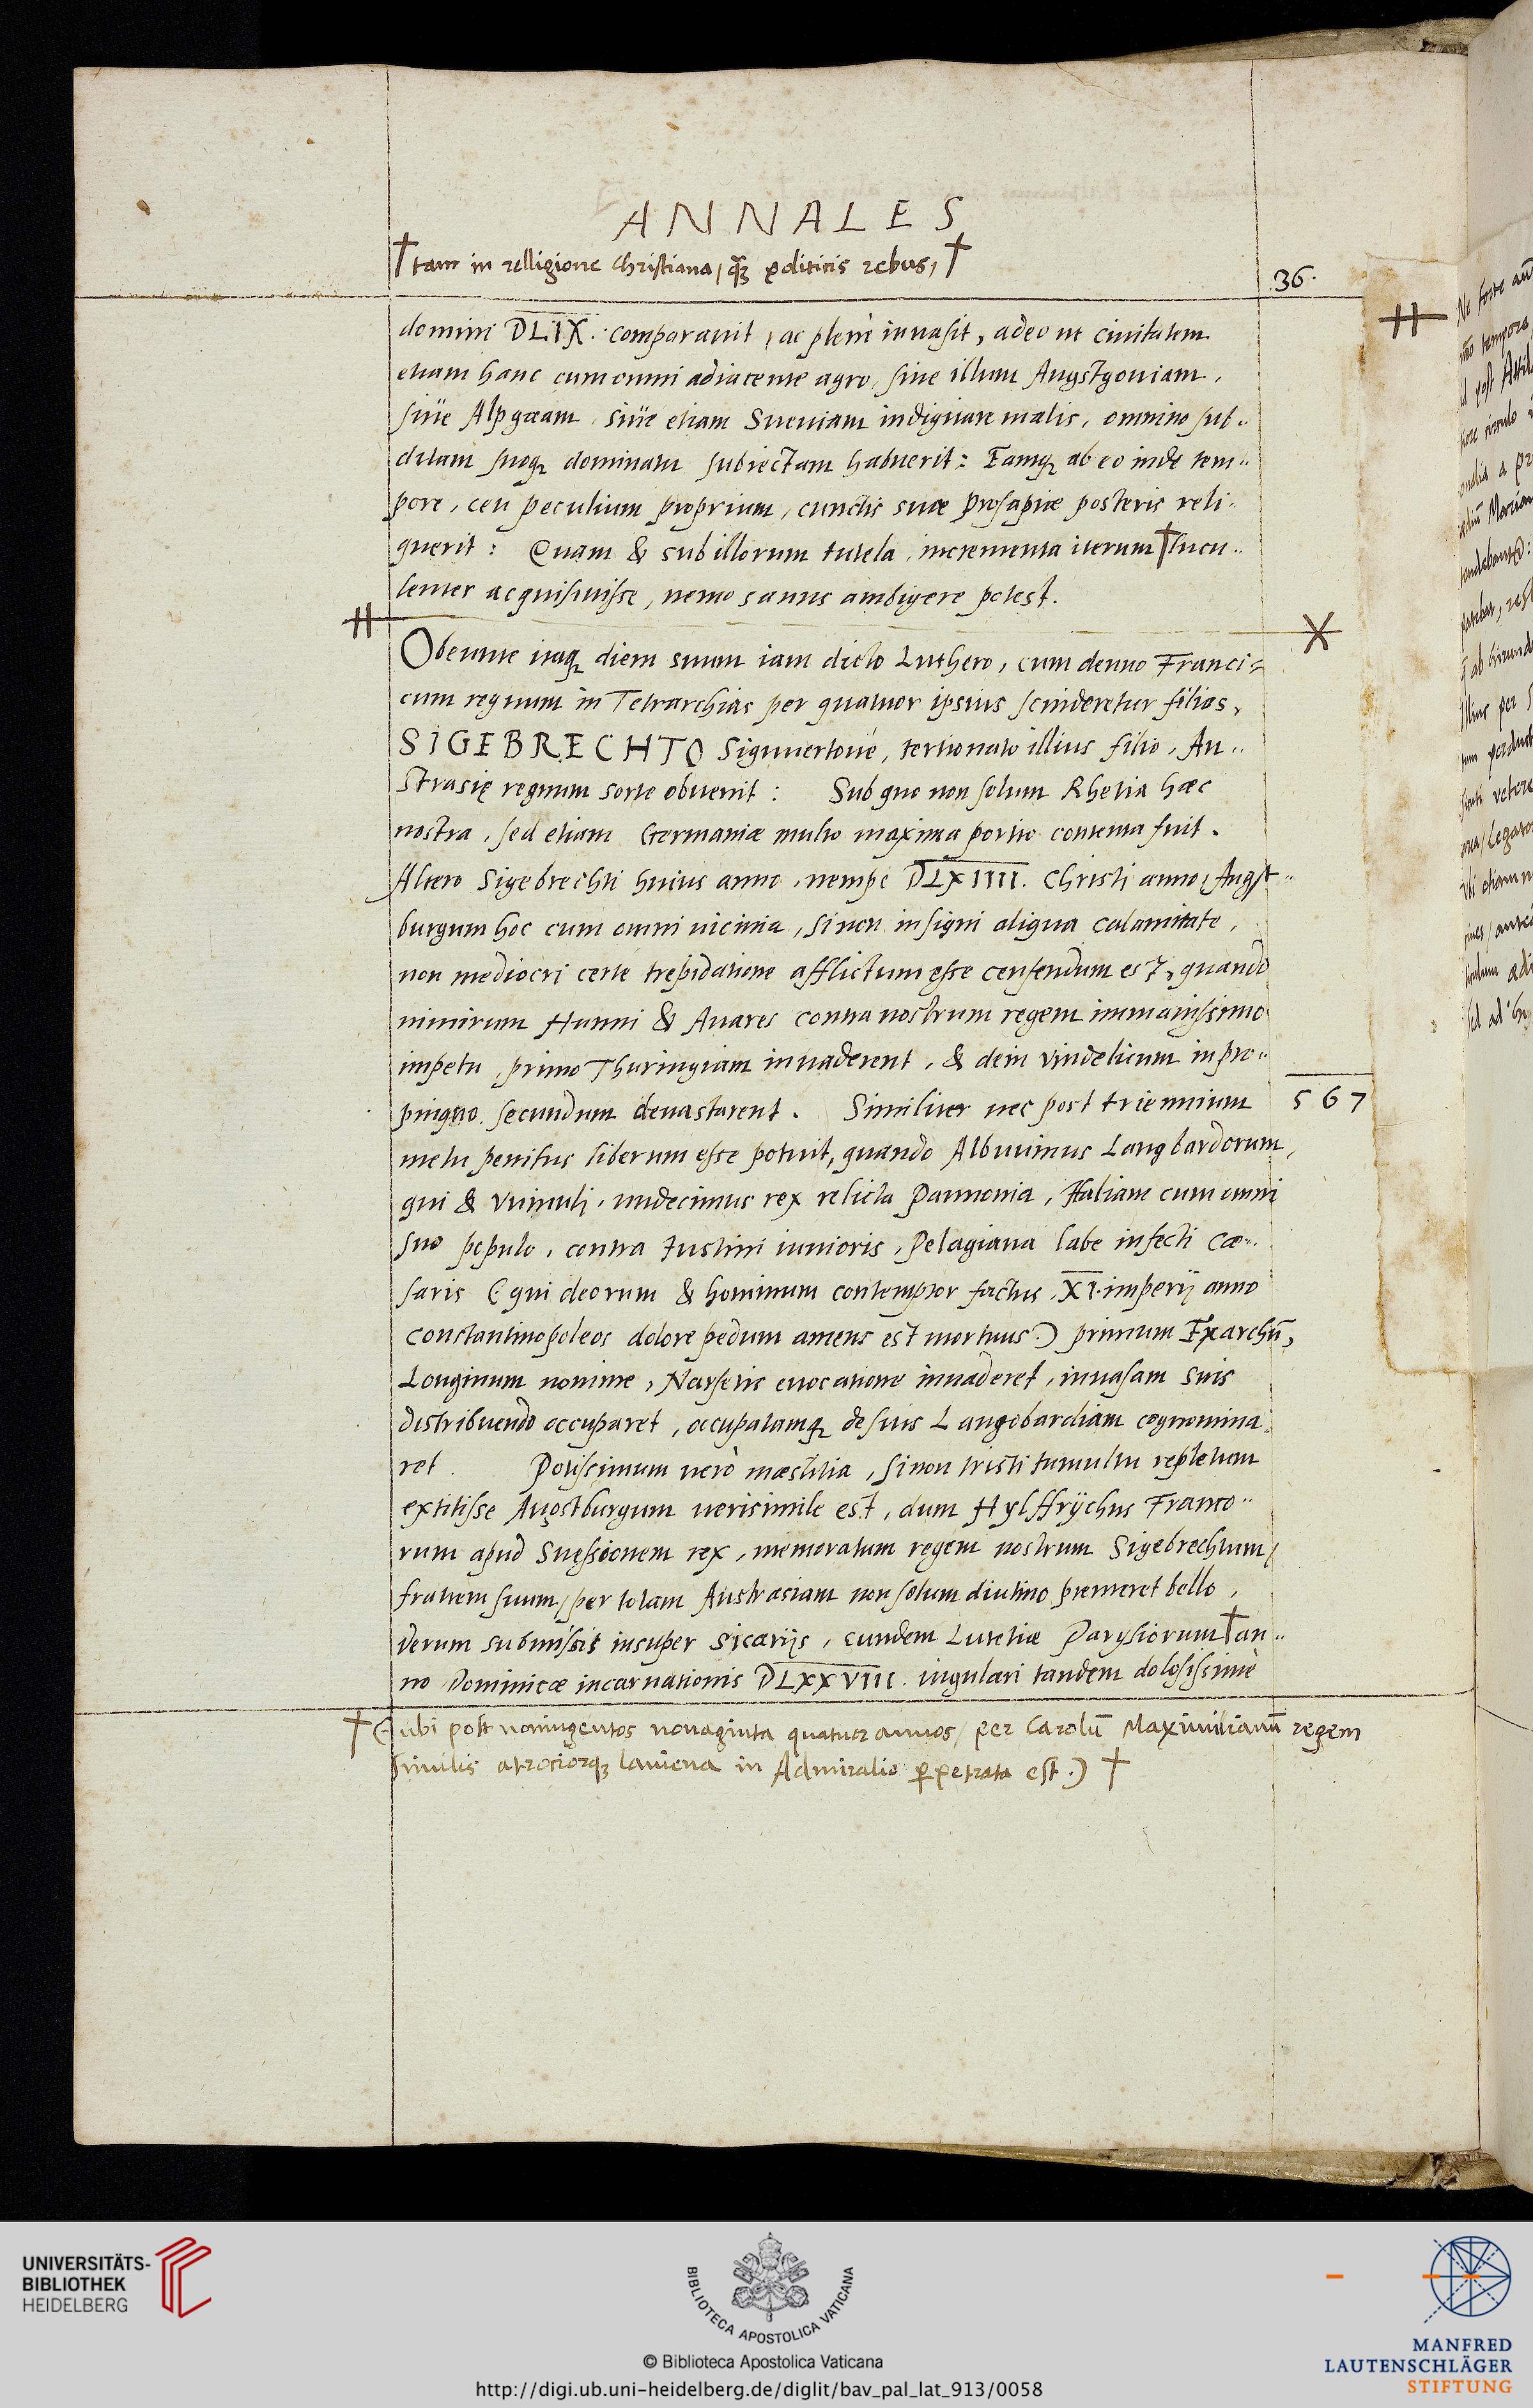 ANNALES
†tam in relligione Christiana, quā politicis rebus,†
36.
domini DLIX. comparauit, ac plenè inuasit, adeo ut ciuitatem
etiam hanc cum omni adiacente agro, siue illum Augstgouiam,
siüe Alpgœam, siüe etiam Sueuiam indigitare malis, omnino sub..
ditam suoq; dominatu subiectam habuerit: Eamq; ab eo inde tem..
pore, ceu peculium proprium, cunctis suæ prosapiæ posteris reli..
querit: Quam & sub illorum tutela, incrementa iterum†lucu..
lenter acquisiuisse, nemo sanus ambigere potest.
Obeunte itaq; diem suum iam dicto Luthero, cum denuo Franci=
cum regnum in Tetrarchias per quatuor ipsius scinderetur filios,
SIGEBRECHTO Siguuertoue, tertionato illius filio, Au..
strasię regnum sorte obuenit: Sub quo non solum Rhetia hæc
nostra, sed etiam Germaniæ multo maxima portio contenta fuit.
Altero Sigebrechti huius anno, nempe DLXIIII. Christi anno, Augst..
burgum hoc cum omni uicinia, si non insigni aliqua calamitate,
non mediocri certe trepidatione afflictum esse censendum est, quando
nimirum Hunni & Auares contra nostrum regem immanissimo
impetu, primo Thuringiam inuaderent, & dein Vindelicum in pro..
pinquo, secundum deuastarent. Similiter nec post triennium
567
metu penitus liberum esse potuit, quando Albuuinus Langbardorum,
qui & Vuinuli, undecimus rex relicta Pannonia, Italiam cum omni
suo populo, contra Iustini iunioris, Pelagiana labe infecti cæ..
saris (qui deorum & hominum contemptor factus, XI. imperij anno
Constantinopoleos dolore pedum amens est mortuus.) primum Exarchū,
Longinum nomine, Narsetis euocatione inuaderet, inuasam suis
distribuendo occuparet, occupatamq; de suis Langobardiam cognomina..
ret. Potissimum uerò mæstitia, si non tristi tumultu repletum
extitisse Augostburgum uerisimile est, dum Hylffrÿchus Franco..
rum apud Suessionem rex, memoratum regem nostrum Sigebrechtum,
fratrem suum, per totam Austrasiam non solum diutino premeret bello,
verum submissis insuper sicarijs, eundem Lutetiæ Parysiorum†an..
no Dominicæ incarnationis DLXXVIII. iugulari tandem dolosissimè
†(ubi post noningentos nonaginta quatuor annos, per Carolū Maximilianū regem
similis atrociorq; laniena in Admiralio perpetrata est.)†
Ne forte
tempore
id post
a
ab
per
vetere
Legatos
etiam
UNIVERSITÄTS-
BIBLIOTHEK
HEIDELBERG
BIBLIOTECA APOSTOLICA VATICANA
© Biblioteca Apostolica Vaticana
http://digi.ub.uni-heidelberg.de/diglit/bav_pal_lat_913/0058
MANFRED
LAUTENSCHLÄGER
STIFTUNG